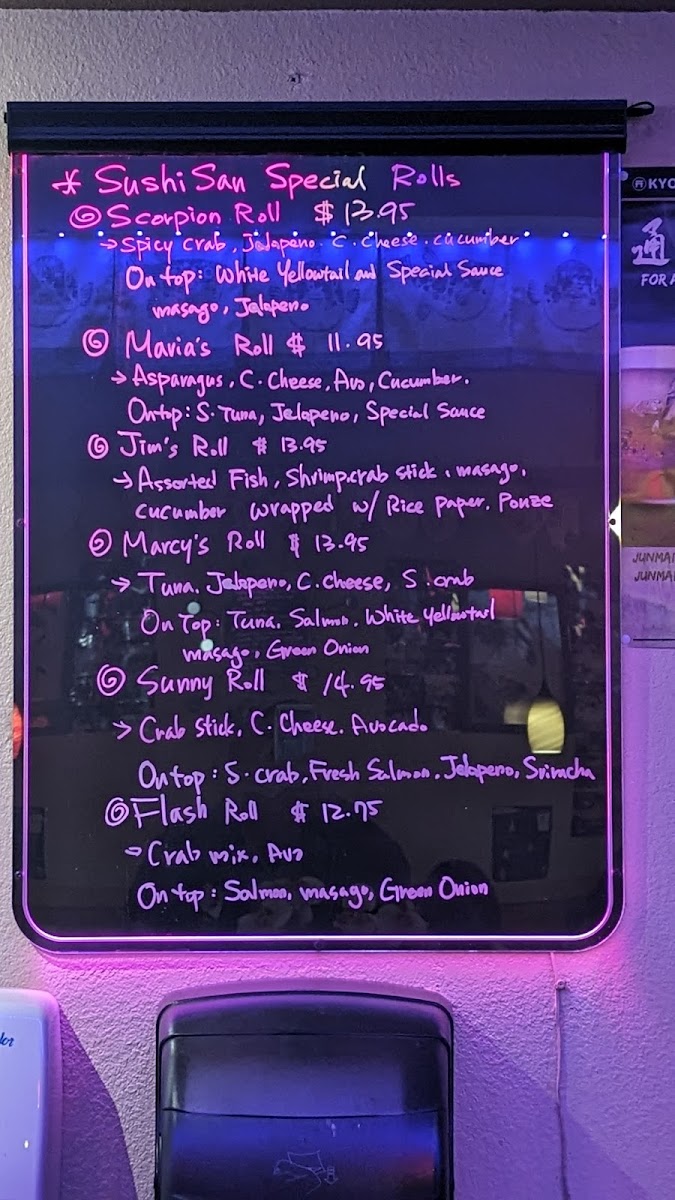 * Sushi San Special Rolls
Scorpion Roll $13.95
→ Spicy crab, Jalapeno. C. cheese. cucumber
On top: White Yellowtail and Special Sauce
masago, Jalapeno
Maria's Roll $ 11.95
→ Asparagus, C. Cheese, Avo, Cucumber.
On top: S. Tuna, Jalapeno, Special Sauce
Jim's Roll $ 13.95
→ Assorted Fish, Shrimp, crab stick, masago,
cucumber wrapped w/ Rice Paper. Ponze
Marcy's Roll $ 13.95
→ Tuna. Jalapeno, C. cheese, S. crab
On Top: Tuna. Salmon. White Yellowtail
masago, Green Onion
Sunny Roll $ 14.95
→ Crab Stick, C. Cheese. Avocado
On top: S. crab, Fresh Salmon. Jalapeno, Sriracha
Flash Roll $ 12.75
→ Crab mix, Avo
On top: Salmon, masago, Green Onion
KYO
通
FOR A
JUNMAI
JUNMAI